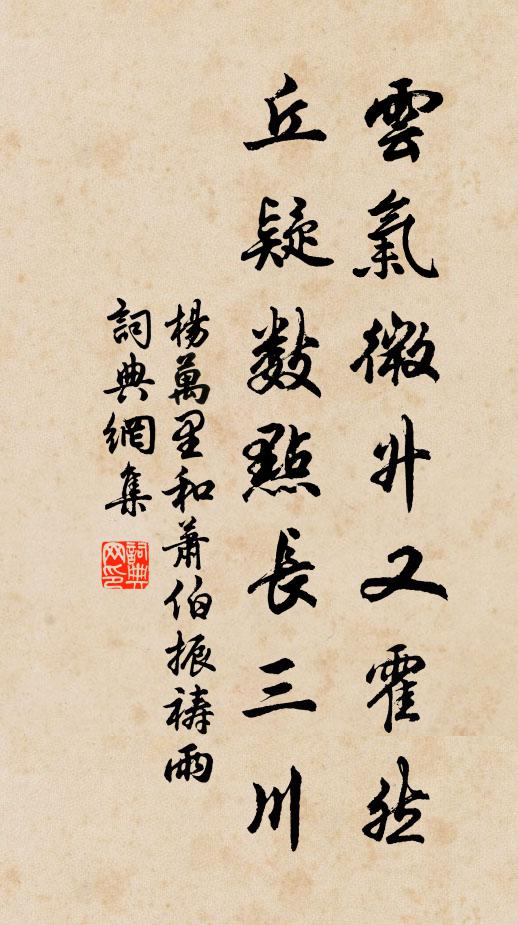 雲氣微升又霍然
丘疑數點長三川
楊萬里和蕭伯振禱雨
詞典網集
詞典网印